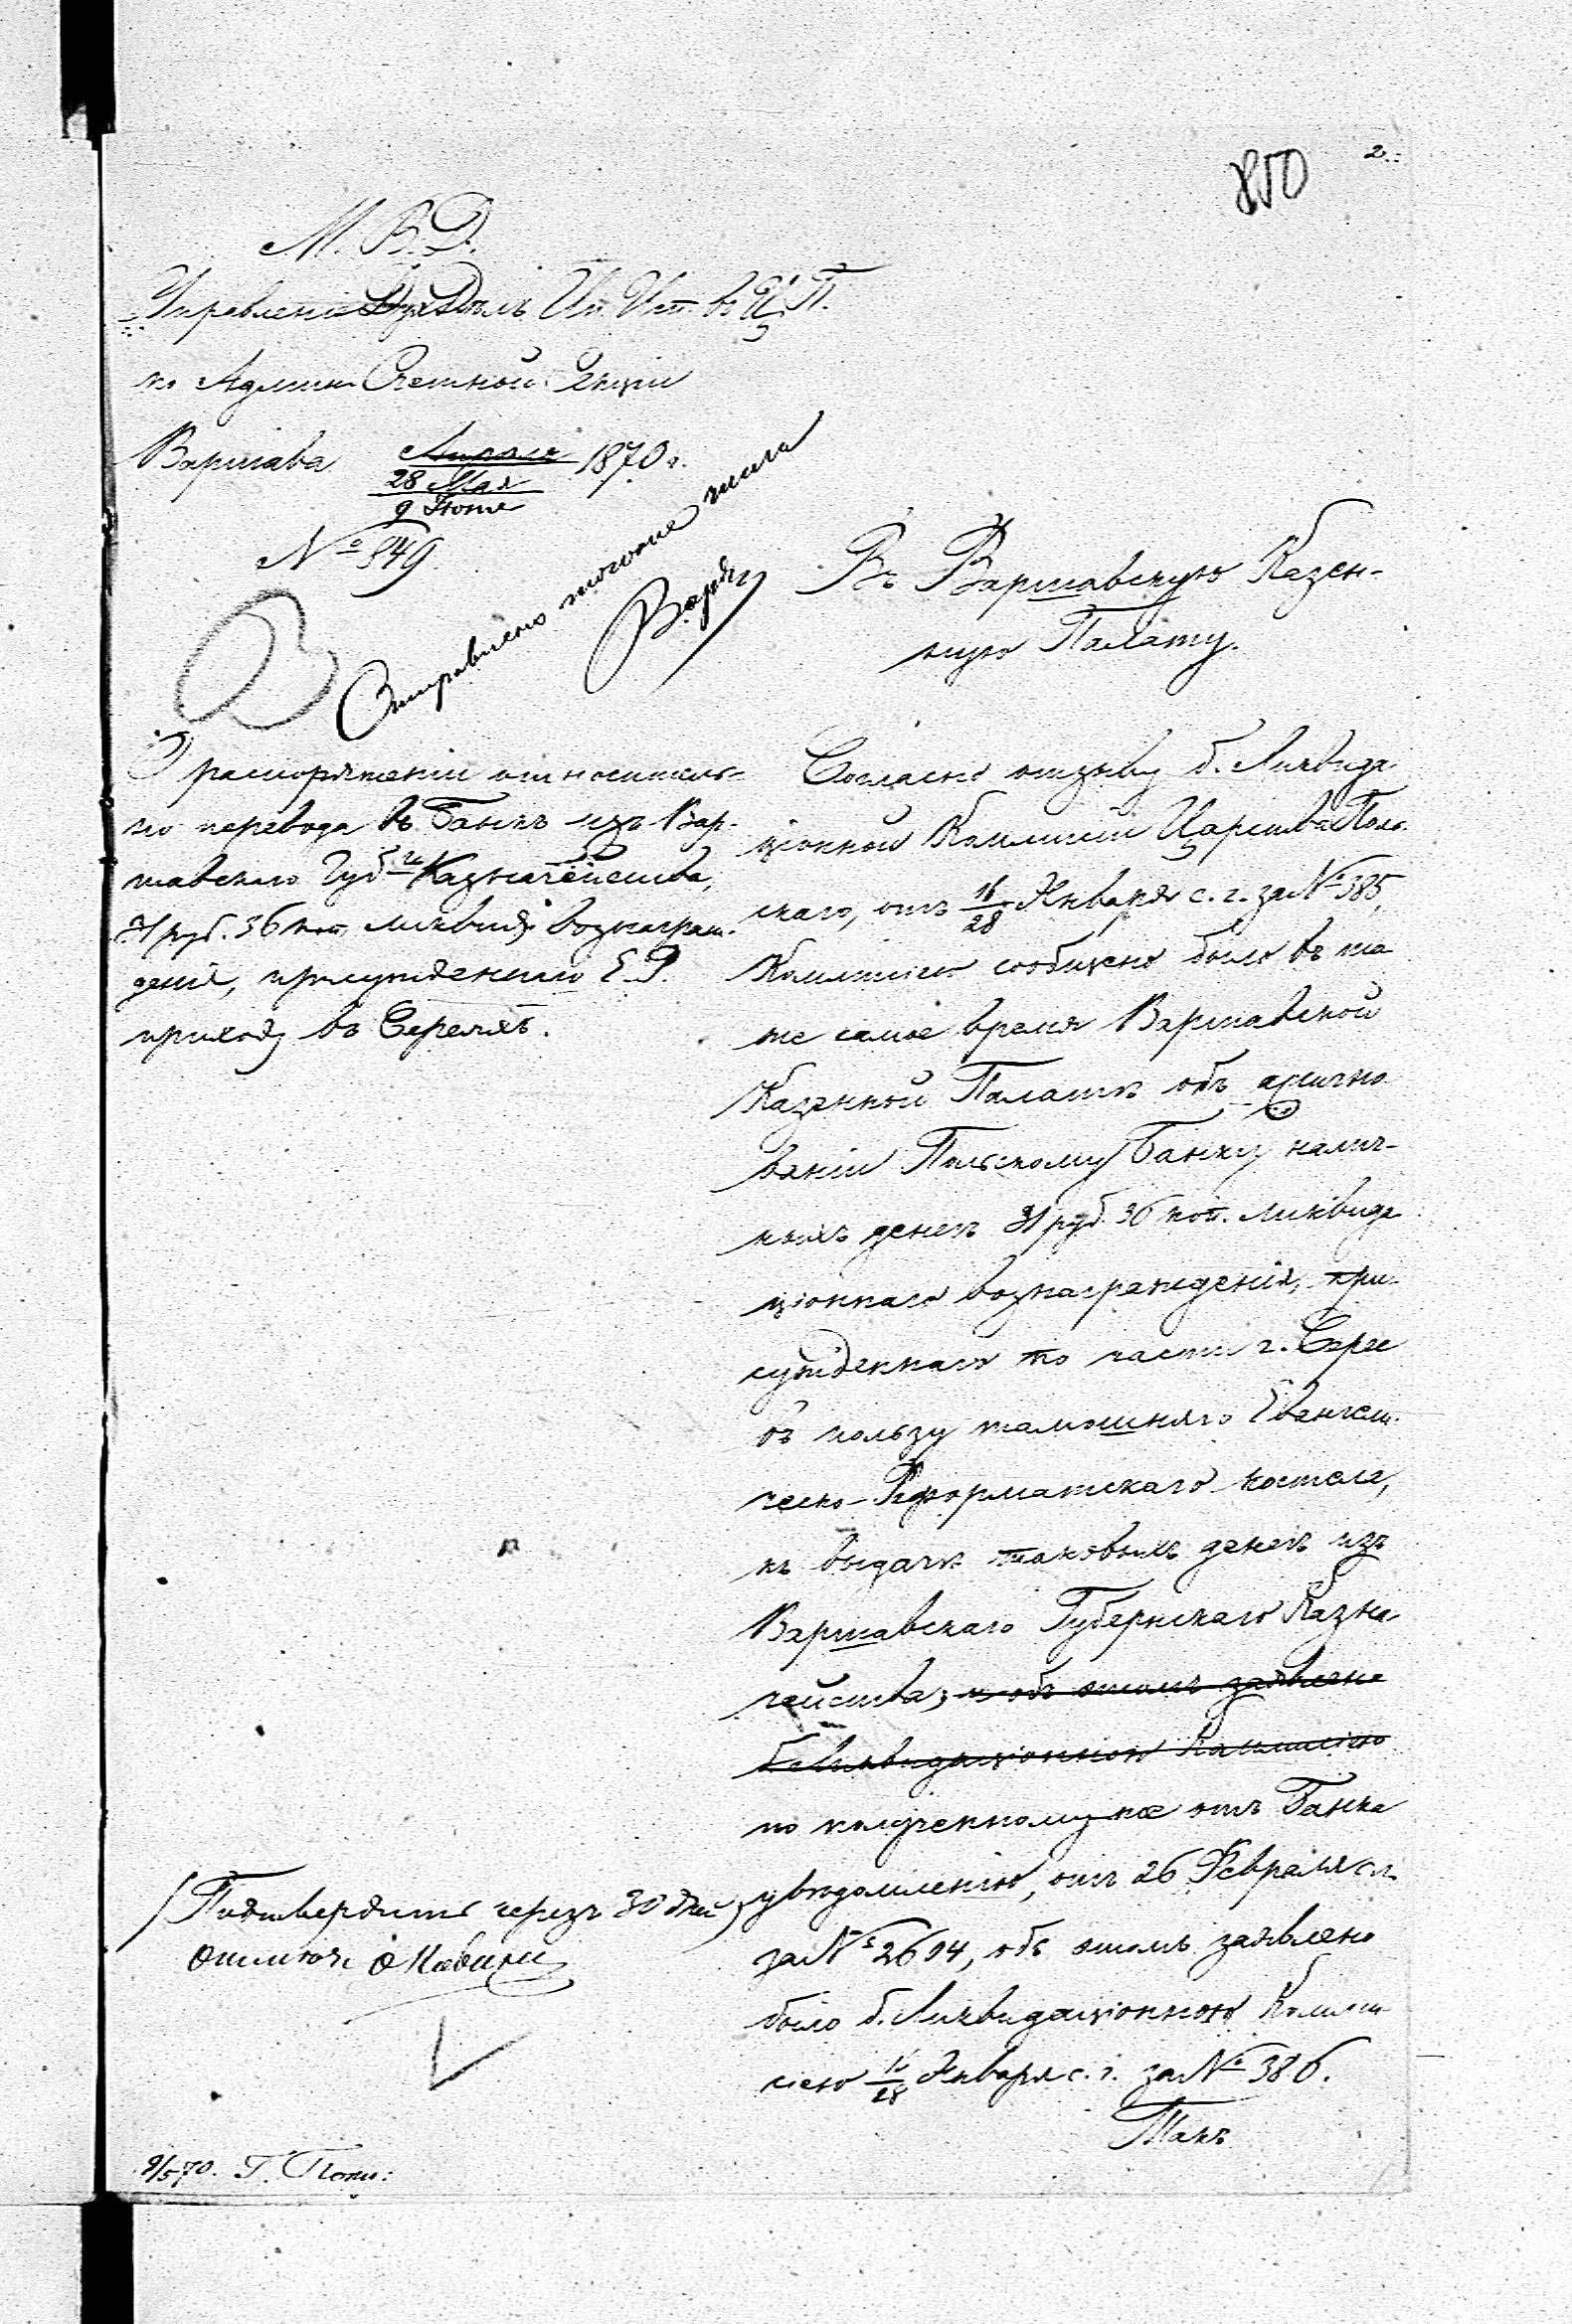 850
2.
М. В. Д.
Управленіе Дух. Дѣлъ Ин. Исп. въ Ц. П.
по Админ. Счетной Секціи
Варшава Апрѣля 1870 г.
28 Мая
9 Іюня
№ 849.
Отправлено того же числа
Въ Варшавскую Казен-
ную Палату.
О распоряженіи относитель-
но перевода въ Банкъ изъ Вар-
шавскаго Губ. Казначейства,
31 руб. 36 коп. ликвид. вознаграж-
денія, присужденнаго Е. Р.
приходу въ Сереяхъ.
Согласно отзыву б. Ликвида-
ціонной Коммисіи Царства Поль-
скаго, отъ 16/28 Января с. г. за № 385,
Коммисіею сообщено было въ то
же самое время Варшавской
Казенной Палатѣ объ ассигно-
ваніи Польскому Банку налич-
ныхъ денегъ 31 руб. 36 коп. ликвида-
ціоннаго вознагражденія, при-
сужденнаго по части г. Серее
въ пользу тамошняго Евангели-
ческо-Реформатскаго костела,
къ выдачѣ таковыхъ денегъ изъ
Варшавскаго Губернскаго Казна-
чейства; и объ этомъ заявлено
б. Ликвидаціонною Коммисіею
по полученному же отъ Банка
увѣдомленію, отъ 26 Февраля с. г.
за № 2614, объ этомъ заявлено
было б. Ликвидаціонною Комми-
сіею 16/28 Января с. г. за № 386.
Такъ
Подтвердить черезъ 30 дней
9/5 70.